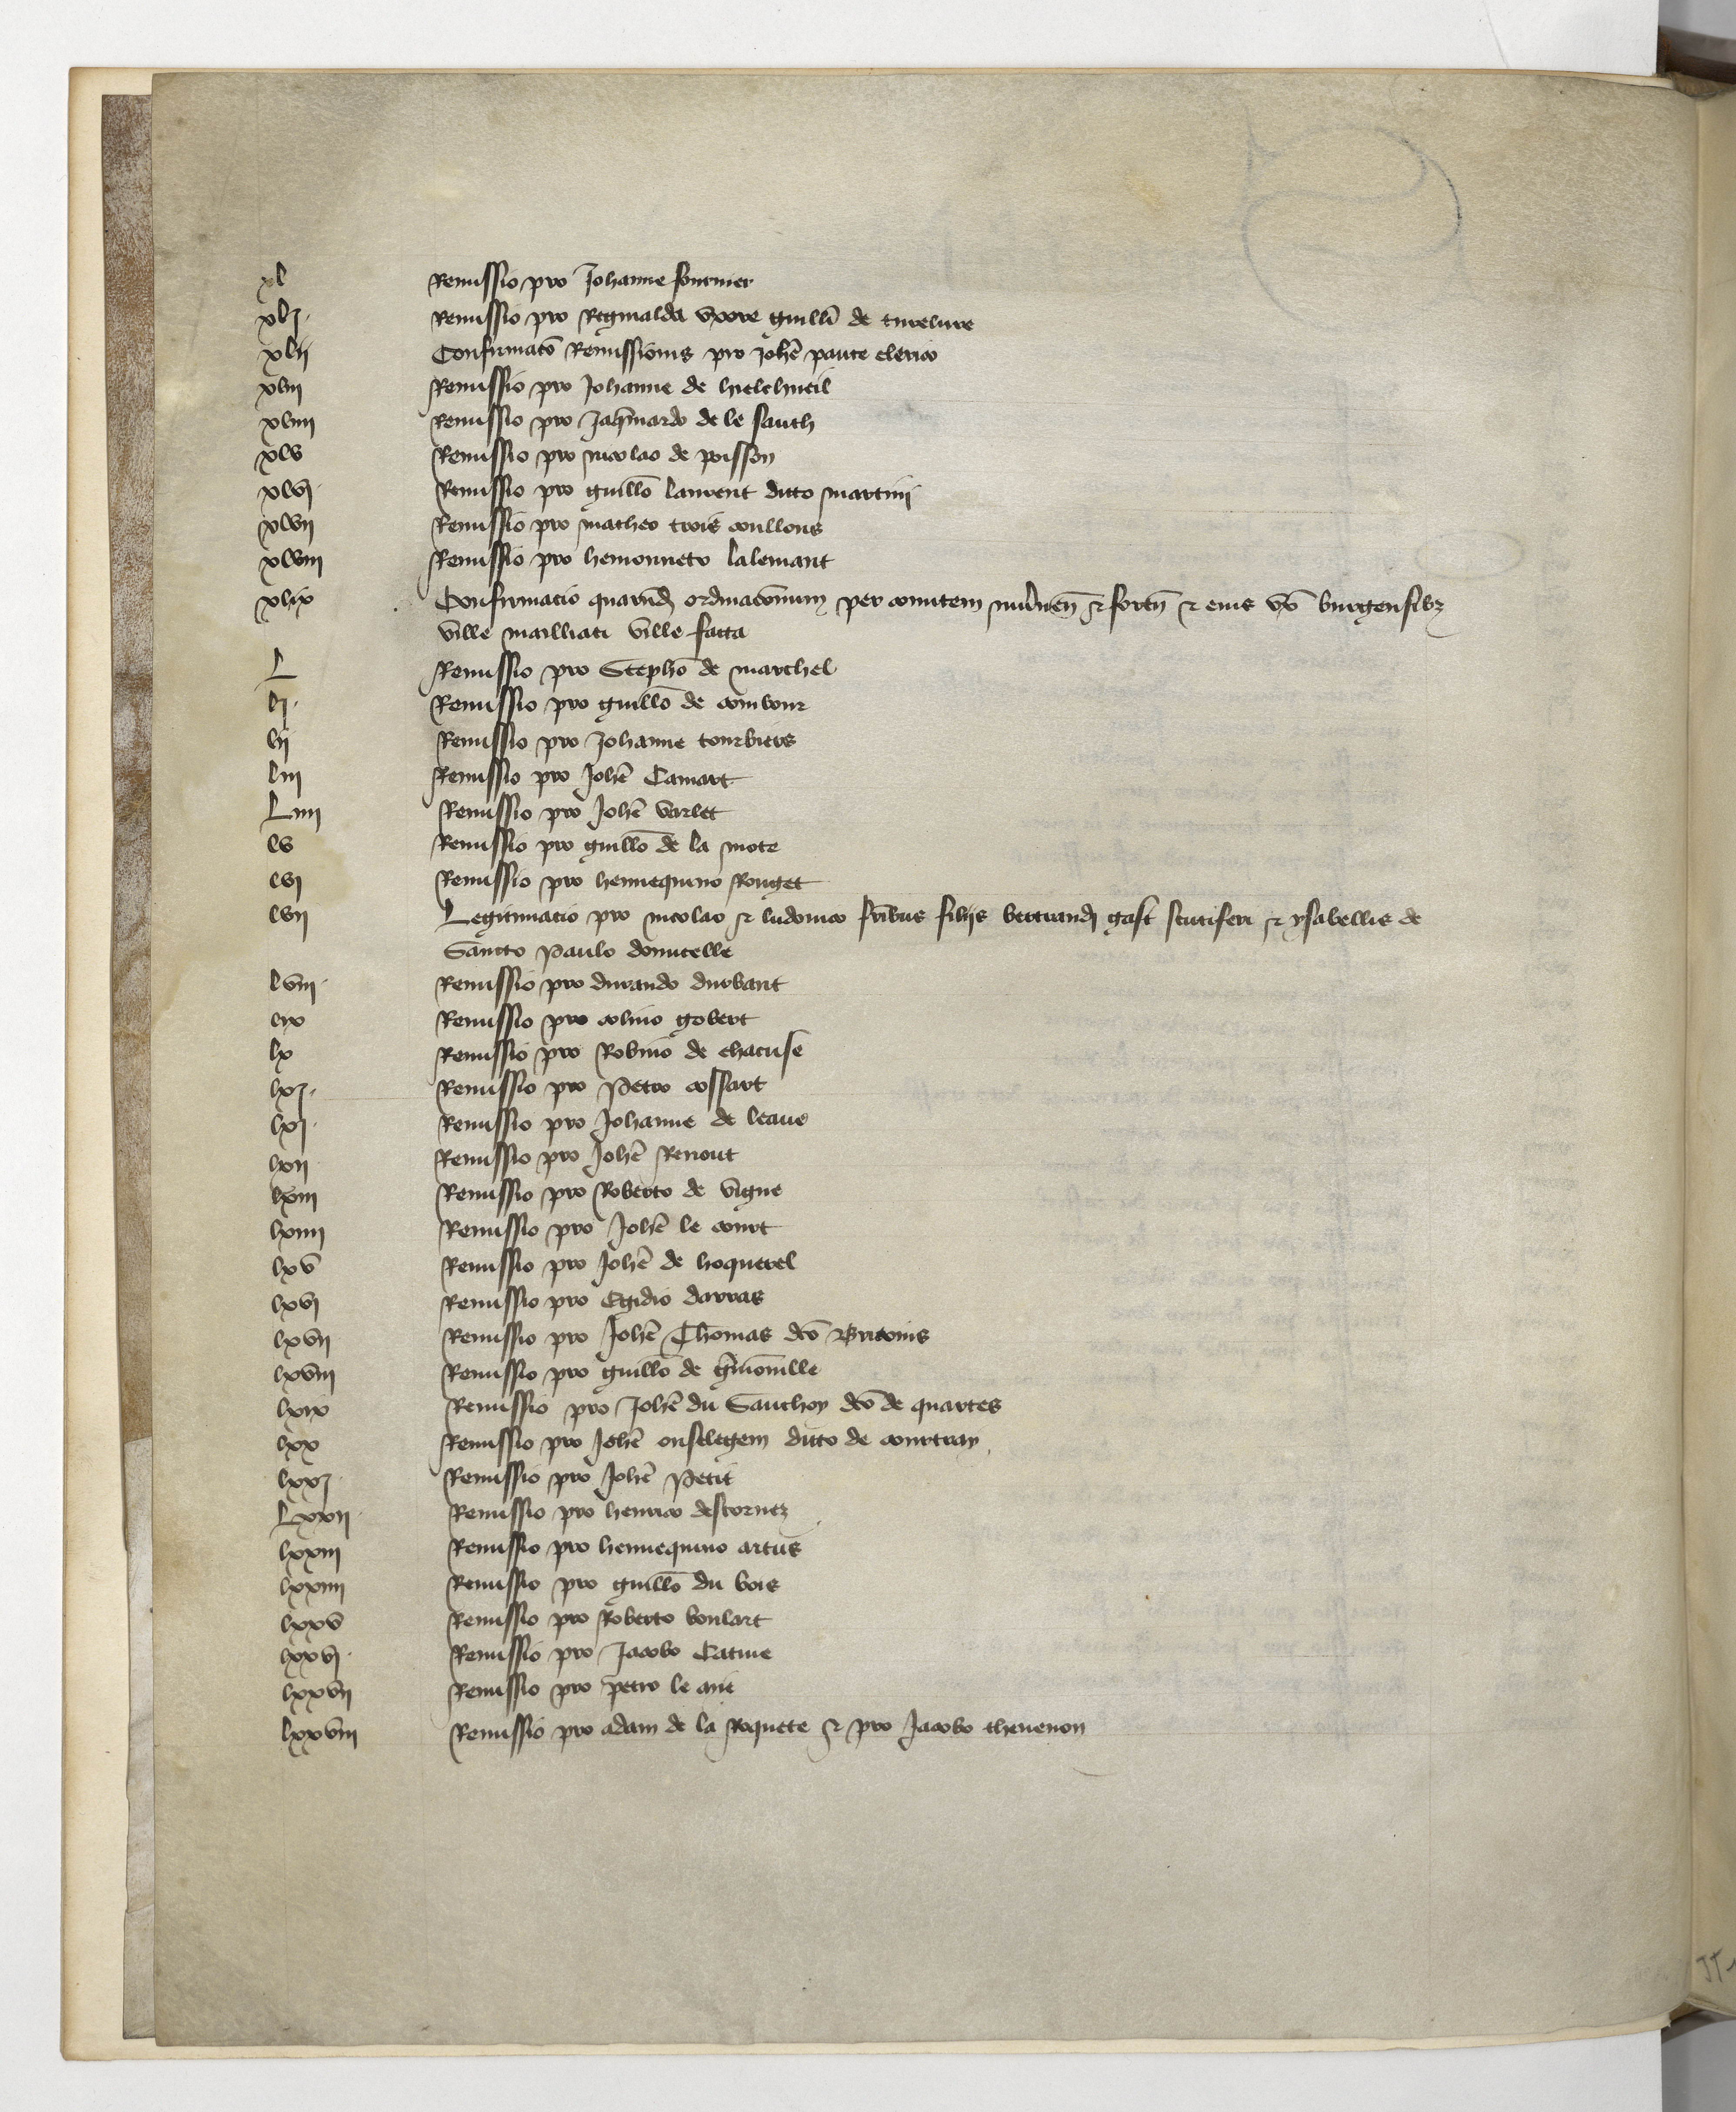 xl Remissio pro Johanne fournier
xlj. Remissio pro Reginalda uxore guillī de turelure
xlij Confirmatō Remissionis pro Johē paute clerico
xliij Remissio pro Johanne de
xliiij Remissio pro Jaq̄mardo de le sauch
xlv Remissio pro nicolao de poisson
xlvj Remissio pro guillō laurent dicto martini
xlvij Remissio pro matheo trois coullons
xlviij Remissio pro hemonneto lalemant
xlix Confirmacio quarūd ordinacōnum per comitem nivn̄en̄ et fortn̄ et eius uxō burgensibz
ville mailliati ville facta
L Remissio pro Stephō de marchel
lj. Remissio pro guillō de combour
lij Remissio pro Johanne tourbiers
liij Remissio pro Johē Camart
Liiij Remissio pro Johē varlet
lv Remissio pro guillō de la mote
lvj Remissio pro hennequino Rouget
lvij Legitimacio pro nicolao et ludovico frībus filijs bertrandi gast scutiferi et ysabellis de
Sancto Paulo domicelle
lviij Remissio pro durando durbant
lix Remissio pro colino gobert
lx Remissio pro Robino de chacuse
lxj. Remissio pro Petro cossart
lxj. Remissio pro Johanne de leaue
lxij Remissio pro Johē Renout
lxiij Remissio pro Roberto de vigne
lxiiij Remissio pro Johē le court
lxv Remissio pro Johē de hoquerel
lxvj Remissio pro Egidio darras
lxvij Remissio pro Johē Thomas dcō Britonis
lxviij Remissio pro guillō de
lxix Remissio pro Johē du Sauchoy dcō de quartes
lxx Remissio pro Johē onselegem dicto de courtray
lxxj Remissio pro Johē Petit
Lxxij Remissio pro henrico descornez
lxxiij Remissio pro hennequino artus
lxxiiij Remissio pro guillō du bois
lxxv Remissio pro Roberto boulart
lxxvj. Remissio pro Jacobo Catine
lxxvij Remissio pro petro le
lxxviij Remissio pro adam de la Roquete et pro Jacobo thevenon